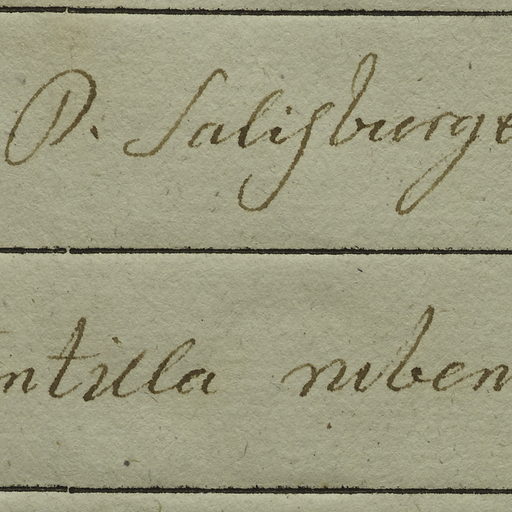 P. Salisburge
ntilla ruben